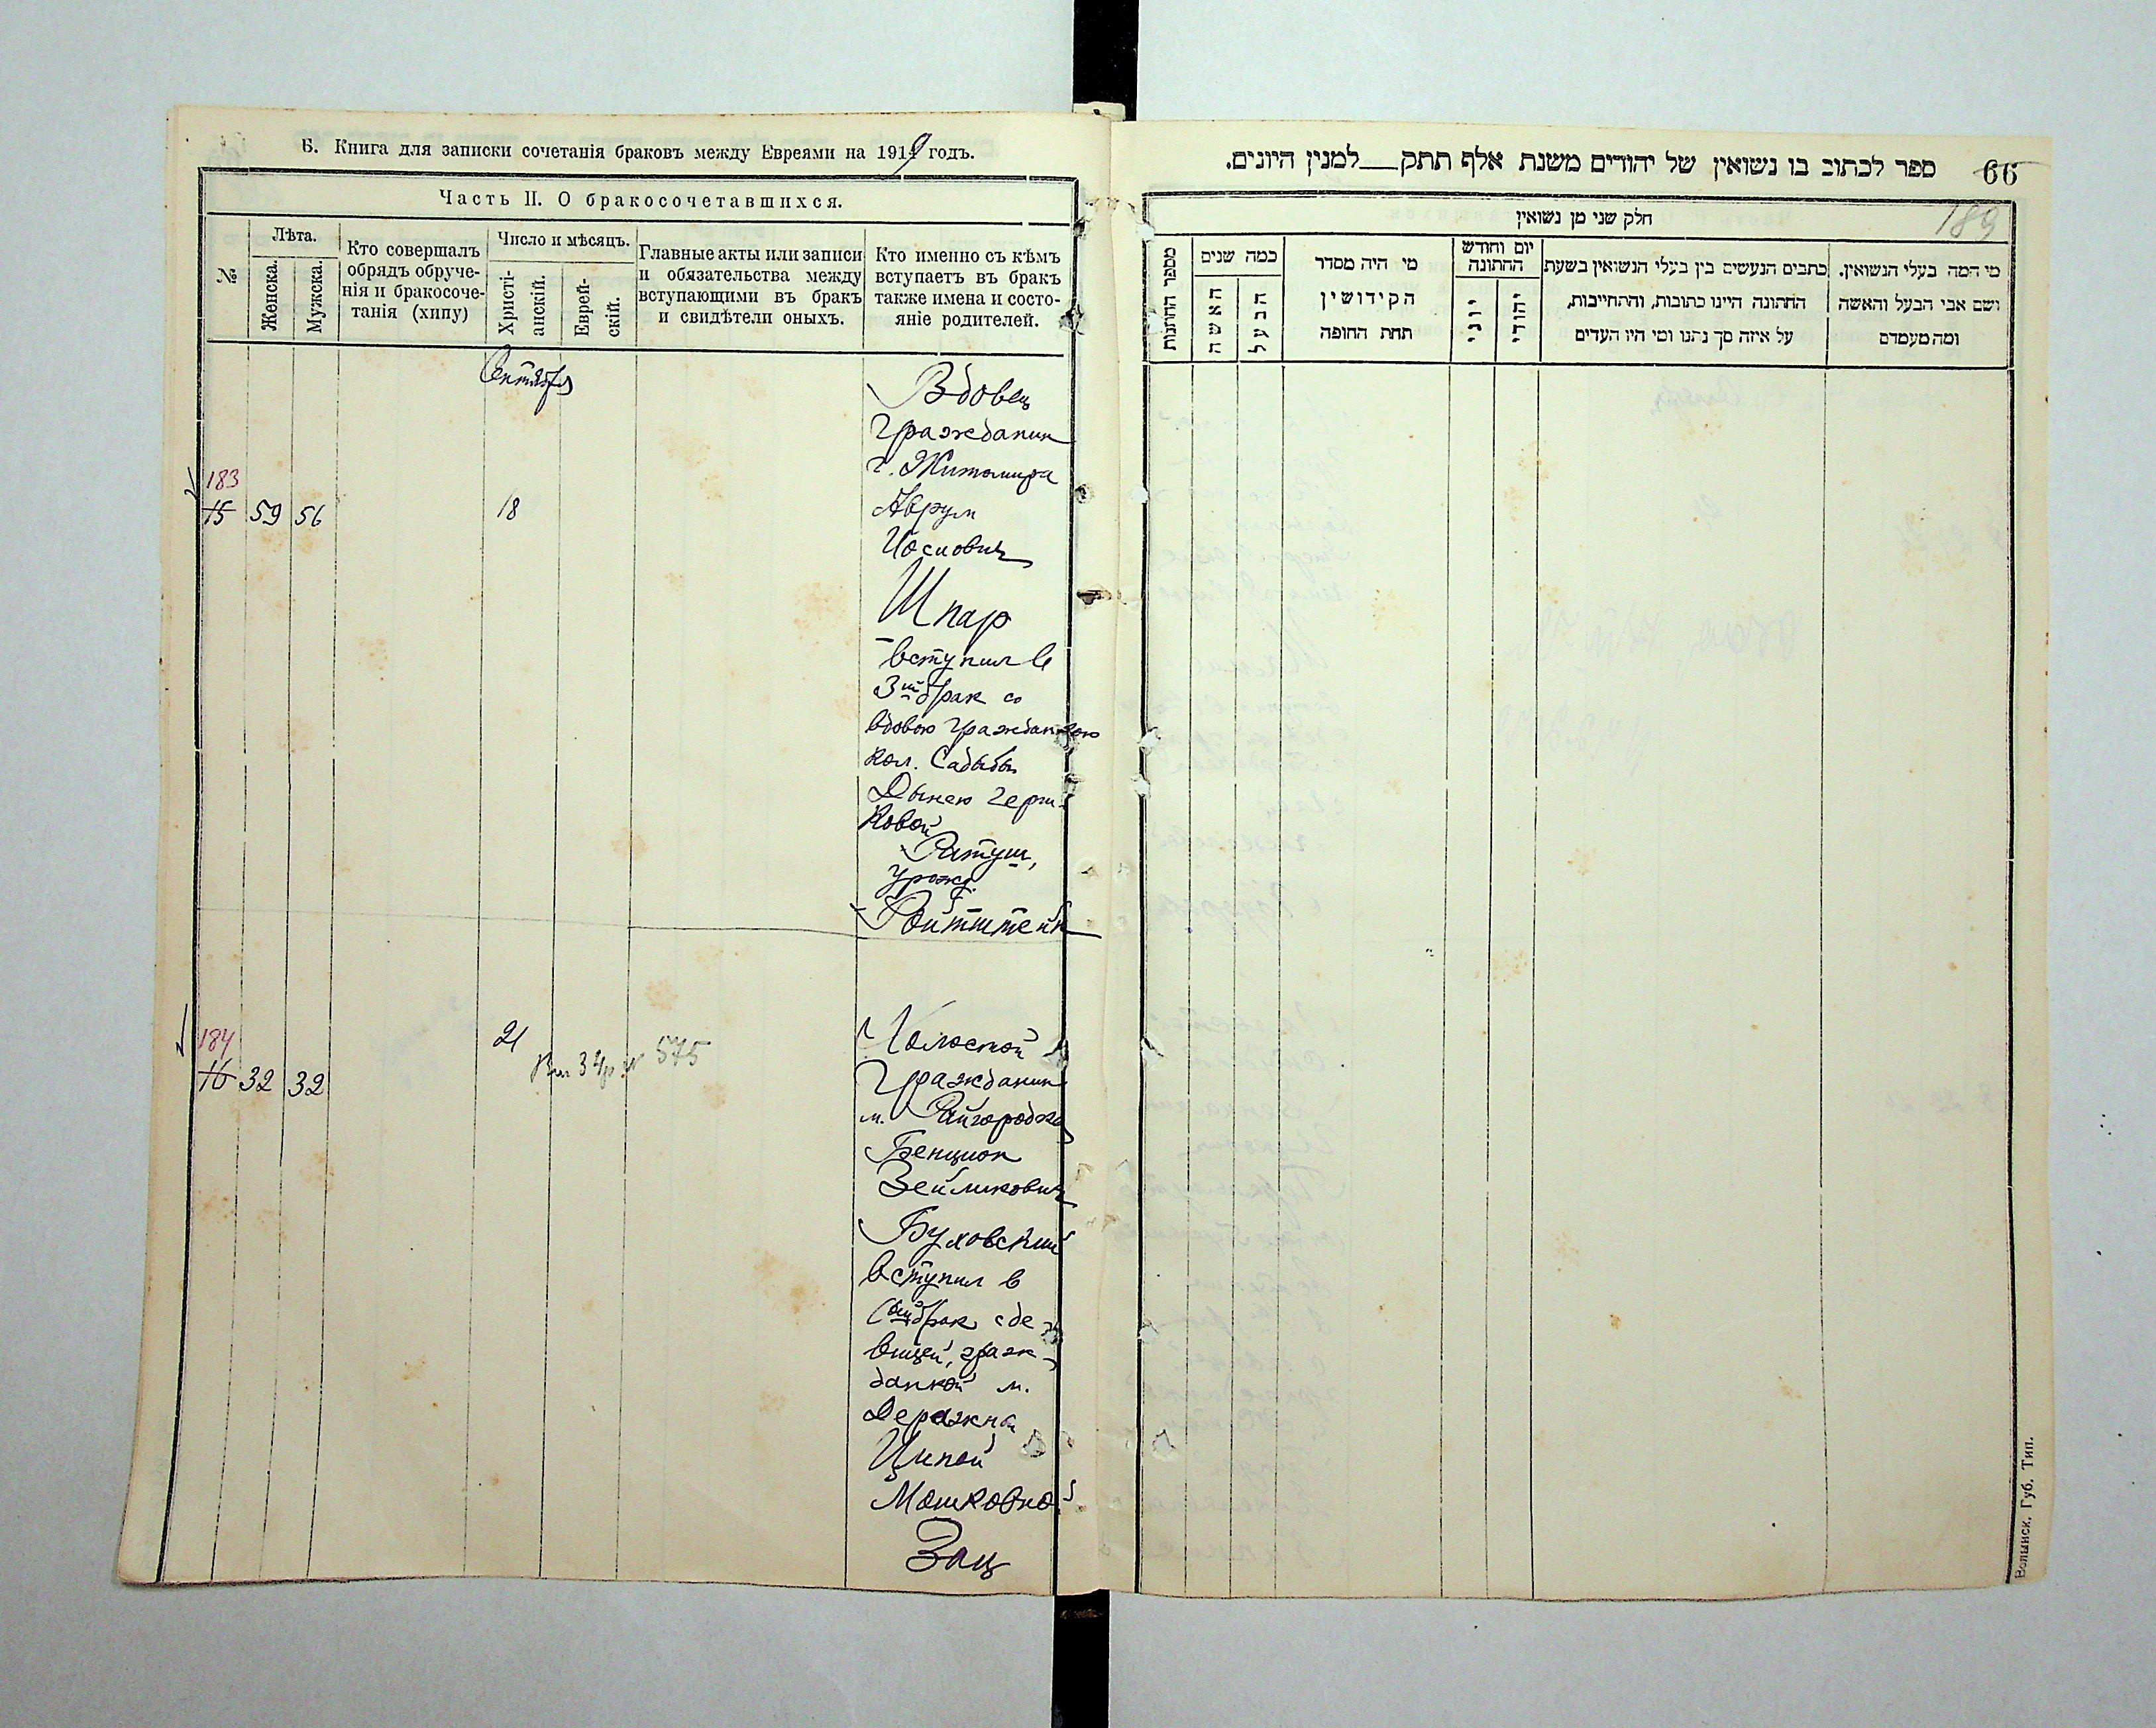 Б. Книга для записки сочетанія браковъ между Евреями на 1919 годъ.
Часть II. О бракосочетавшихся.
№
Лѣта.
Женска.
Мужска.
Кто совершалъ
обрядъ обруче-
нія и бракосоче-
танія (хипу)
Число и мѣсяцъ.
Христі-
анскій.
Еврей-
скій.
Главные акты или записи
и обязательства между
вступающими въ бракъ
и свидѣтели оныхъ.
Кто именно съ кѣмъ
вступаетъ въ бракъ
также имена и состо-
яніе родителей.
Сентябрь
183
15 59 56 18
Вдовец
Гражданин
г. Житомира
Аврум
Иосиович
Шпар
вступил в
3ий брак со
вдовою гражданкою
кол. Садыбы
Дынею Герш-
ковой
Ратуш,
урожд.
Ройтштейн
184
16 32 32 21
575
Холостой
Гражданин
м. Райгородка
Бенцион
Зейликович
Буховский
вступил в
брак с де-
вицей, граж-
данкой м.
Деражня
Ципой
Мошковной
Зац
ספר לכתוב בו נשואין של יהודים משנת אלף תתק__למנין היונים.
66
189
חלק שני מן נשואין
מספר החתנות
כמה שנים
האשה
הבעל
מי היה מסדר
הקידושין
תחת החופה
יום וחודש
החתונה
יוני
יהודי
כתבים הנעשים בין בעלי הנשואין בשעת
החתונה היינו כתובות, והתחייבות,
על איזה סך נתנו ומי היו העדים
מי המה בעלי הנשואין.
ושם אבי הבעל והאשה
ומה מעמדם
Волынск. Губ. Тип.